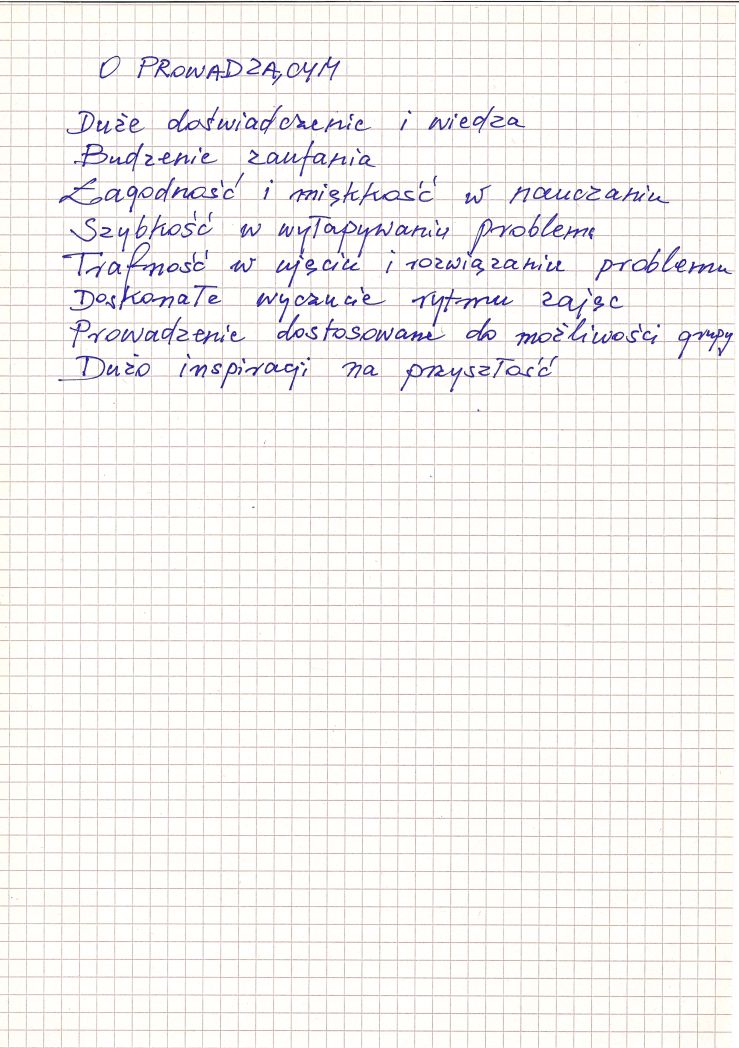 O PROWADZĄCYM
Duże doświadczenie i wiedza
Budzenie zaufania
Łagodność i miękkość w nauczaniu
Szybkość w wyłapywaniu problemu
Trafność w ujęciu i rozwiązaniu problemu
Doskonałe wyczucie rytmu zajęc
Prowadzenie dostosowane do możliwości grupy
Dużo inspiracji na przyszłość